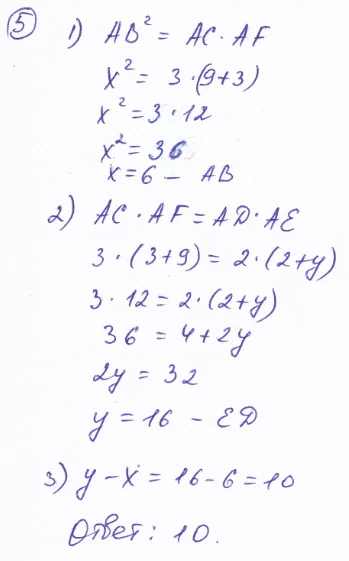 5 1) AB² = AC · AF
x² = 3 · (9+3)
x² = 3 · 12
x² = 36
x = 6 – AB
2) AC · AF = AD · AE
3 · (3+9) = 2 · (2+y)
3 · 12 = 2 · (2+y)
36 = 4 + 2y
2y = 32
y = 16 – ED
3) y – x = 16 – 6 = 10
Ответ: 10.